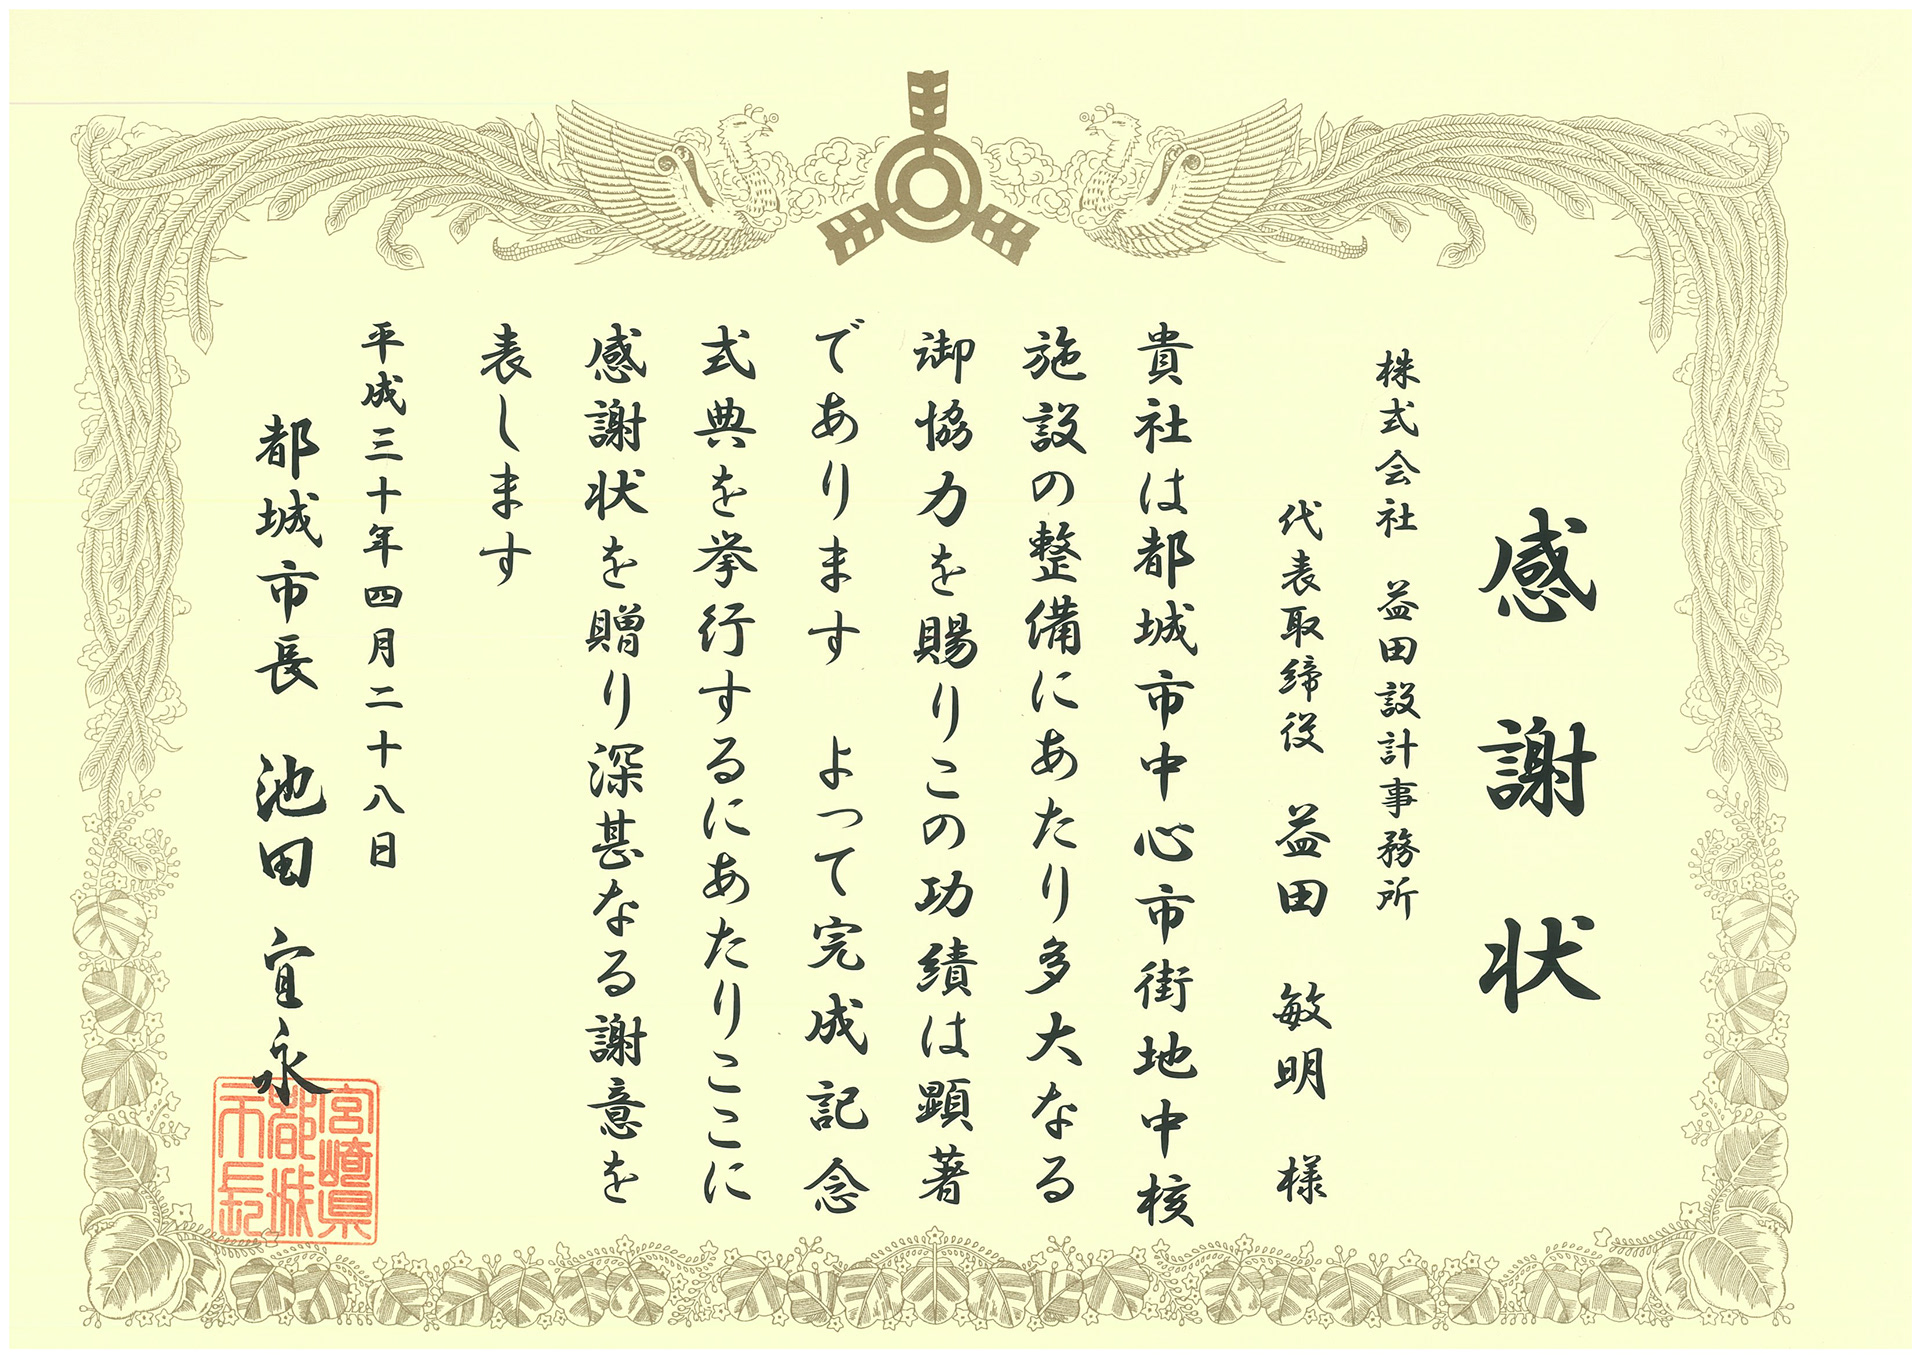 感謝状
株式会社 益田設計事務所
代表取締役 益田 敏明 様
貴社は都城市中心市街地中核
施設の整備にあたり多大なる
御協力を賜りこの功績は顕著
であります よって完成記念
式典を挙行するにあたりここに
感謝状を贈り深甚なる謝意を
表します
平成三十年四月二十八日
都城市長 池田 宜永
宮崎県
都城
市長